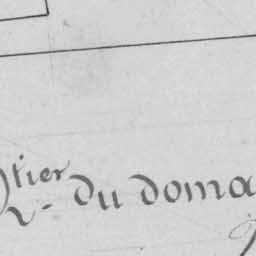 Qtier du doma